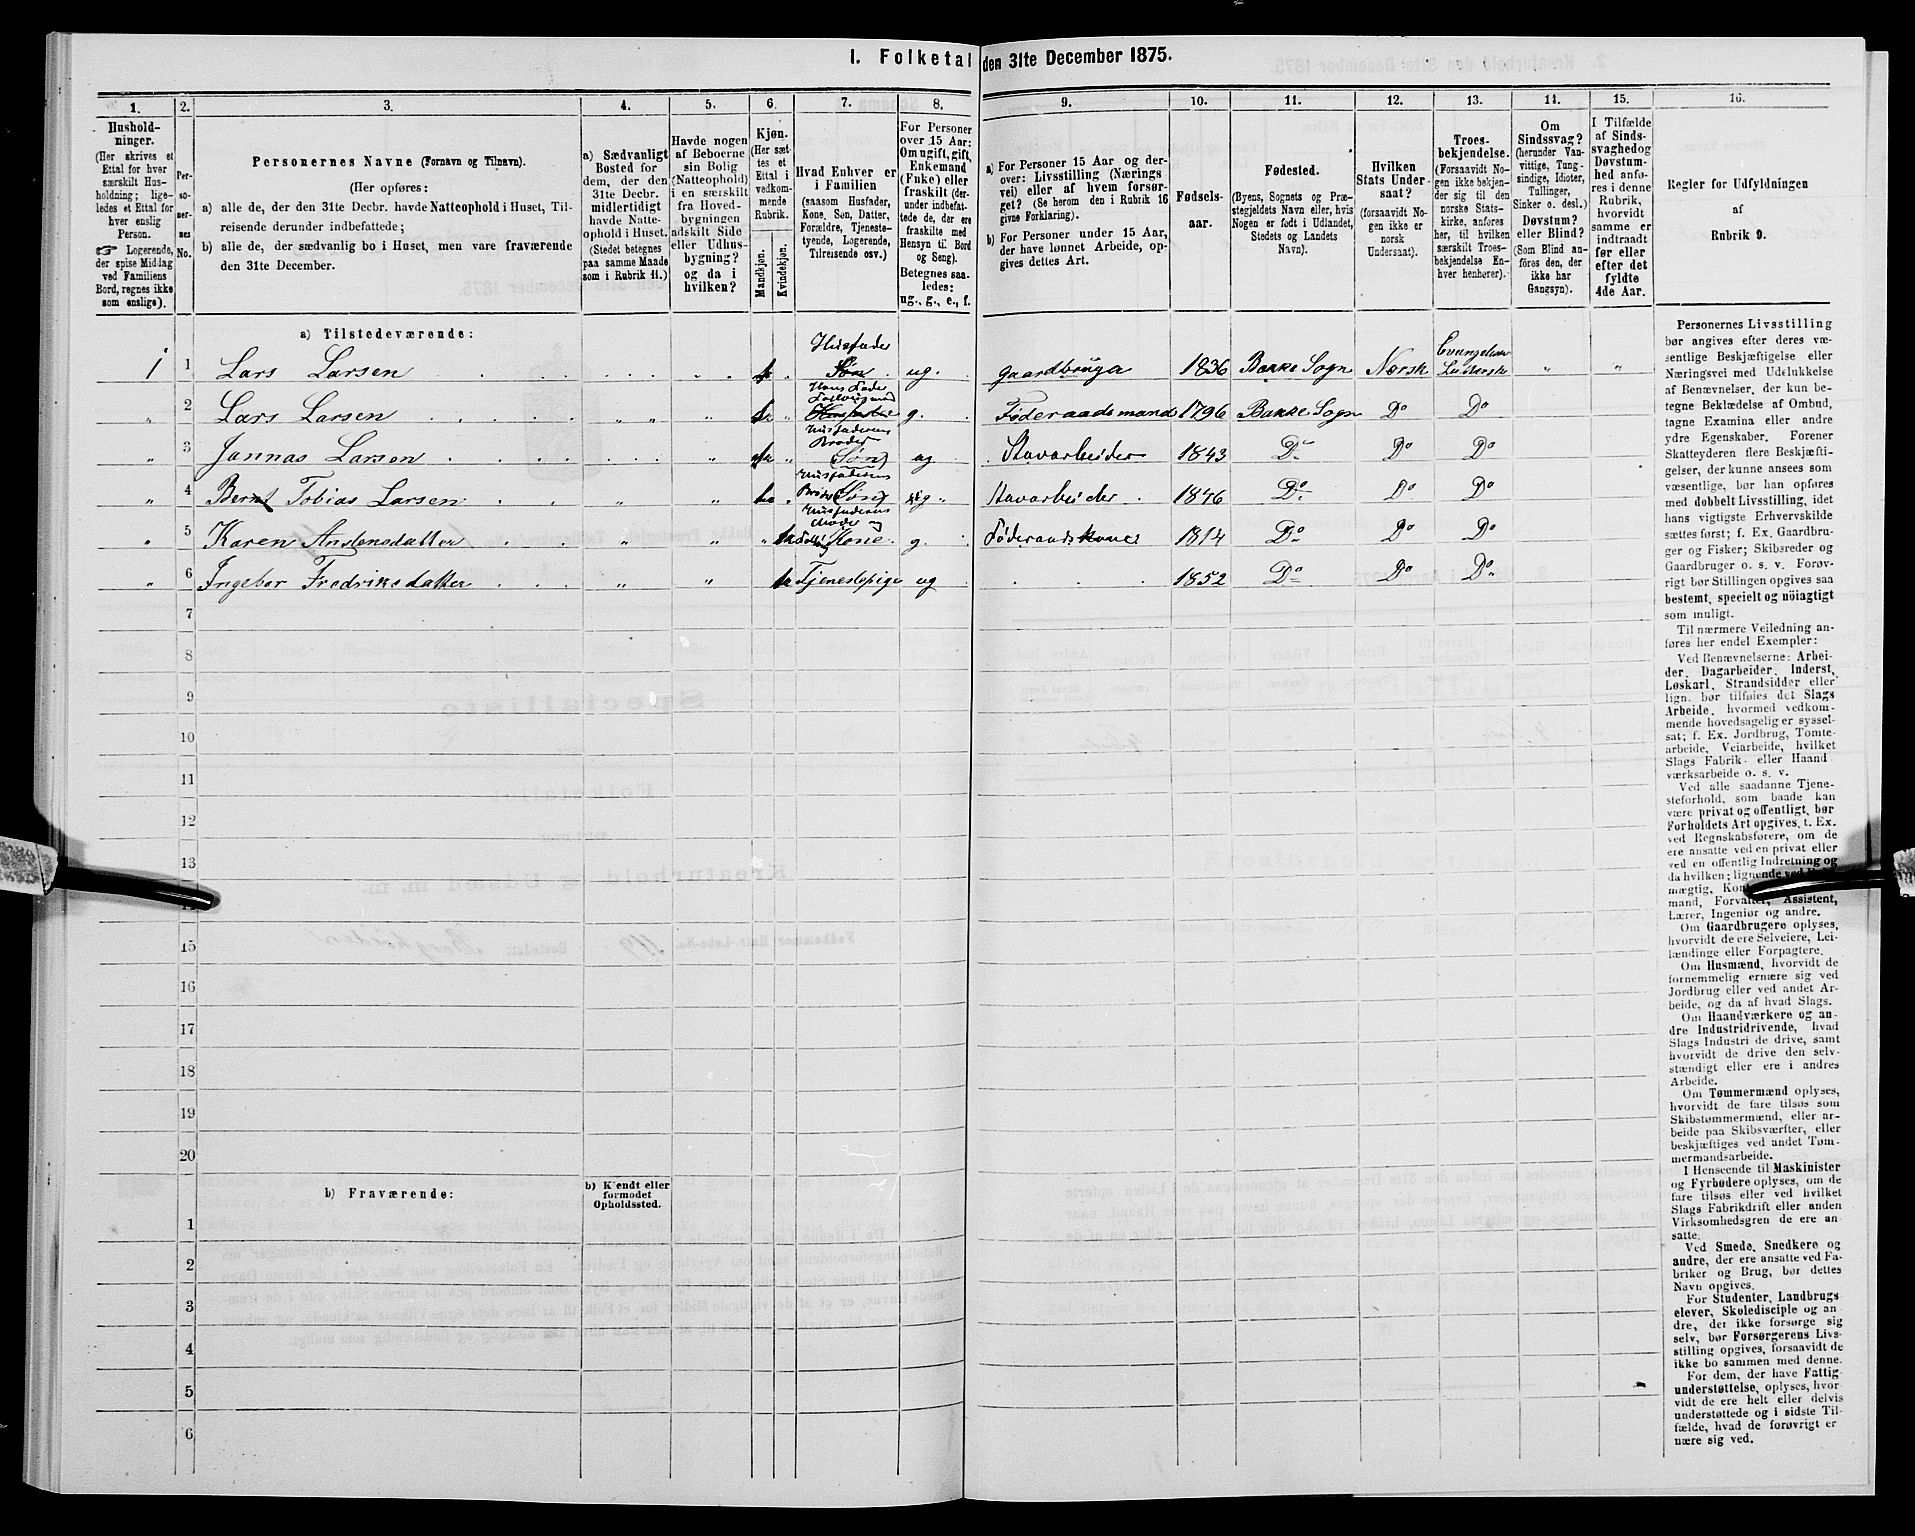 1. Folketal den 31te December 1875.
1. 2. 3. 4. 5. 6. 7. 8. 9. 10. 11. 12. 13. 14. 15. 16.
Hushold-
ninger.
(Her skrives et
Ettal for hver
særskilt Hus-
holdning; lige-
ledes et Ettal for
hver enslig
Person.
☞ Logerende,
der spise Middag
ved Familiens
Bord, regnes ikke
som enslige).
Per-
so-
ner-
nes
No.
Personernes Navne (Fornavn og Tilnavn).
(Her opføres:
a) alle de, der den 31te Decbr. havde Natteophold i Huset, Til-
reisende derunder indbefattede;
b) alle de, der sædvanlig bo i Huset, men vare fraværende
den 31te December.
a) Sædvanligt
Bosted for
dem, der den
31te Decbr.
midlertidigt
havde Natte-
ophold i Huset.
(Stedet betegnes
paa samme Maade
som i Rubrik 11.)
Havde nogen
af Beboerne
sin Bolig
(Natteophold)
i en særskilt
fra Hoved-
bygningen
adskilt Side
eller Udhus-
bygning?
og da i
hvilken?
Kjøn.
(Her sæt-
tes et
Ettal i
vedkom-
mende
Rubrik.
Mandkjøn.
Kvindekjøn.
Hvad Enhver er
i Familien
(saasom Husfader,
Kone, Søn, Datter,
Forældre, Tjeneste-
tyende, Logerende,
Tilreisende osv.)
For Personer
over 15 Aar:
Om ugift, gift,
Enkemand
(Enke) eller
fraskilt (der-
under indbefat-
tede de, der ere
fraskilte med
Hensyn til Bord
og Seng).
Betegnes saa-
ledes:
ug., g., e., f.
a) For Personer 15 Aar og der-
over: Livsstilling (Nærings
vei) eller af hvem forsør-
get? (Se herom den i Rubrik 16
givne Forklaring).
b) For Personer under 15 Aar,
der have lønnet Arbeide, op-
gives dettes Art.
Fødsels-
aar.
Fødested.
(Byens, Sognets og Præ-
stegjeldets Navn eller, hvis
Nogen er født i Udlandet,
Stedets og Landets
Navn).
Hvilken
Stats Under-
saat?
(forsaavidt No-
gen ikke er
norsk
Undersaat).
Troes-
bekjendelse.
(Forsaavidt No-
gen ikke bekjen-
der sig til den
norske Stats-
kirke, anføres
her, til hvilken
særskilt Troes-
bekjendelse En-
hver henhører).
Om
Sindssvag?
(herunder Van-
vittige, Tung-
sindige, Idioter,
Tullinger,
Sinker o. desl.)
Døvstum?
eller Blind?
(Som Blind an-
føres den, der
ikke har
Gangsyn).
I Tilfælde
af Sinds-
svaghed og
Døvstum-
hed anfø-
res i denne
Rubrik,
hvorvidt
samme er
indtraadt
før eller
efter det
fyldte
4de Aar.
Regler for Udfyldningen
af
Rubrik 9.
a) Tilstedeværende:
1 1 Lars Larsen Husfader Søn ug. Gaardbruger 1836 Bakke Sogn Norsk Luthersk
2 Lars Larsen g. Føderaadsmand 1796 Bakke Sogn Do Do
3 Jannas Larsen Husfaderens Broder Søn ug 1843 Do Do Do
4 Bernt Tobias Larsen Husfaderens Søn ug 1846 Do Do Do
5 Karen Husfaderens Moder og Kone g. Føderaadskone 1814 Do Do Do
6 Ingebor Fredriksdatter Tjenestepige ug 1852 Do Do Do
7
8
9
10
11
12
13
15
16
17
18
19
20
b) Fraværende:
b) Kjendt eller
formodet
Opholdssted.
1
2
3
4
5
6
Personernes Livsstilling
bør angives efter deres væ-
sentlige Beskjæftigelse eller
Næringsvei med Udelukkelse
af Benævnelser, der kun be-
tegne Beklædelse af Ombud,
tagne Examina eller andre
ydre Egenskaber. Forener
Skatteyderen flere Beskjæfti-
gelser, der kunne ansees som
væsentlige, bør han opføres
med dobbelt Livsstilling, idet
hans vigtigste Erhvervskilde
sættes først; f. Ex. Gaardbru-
ger og Fisker; Skibsreder og
Gaardbruger o. s. v. Forøv-
rigt bør Stillingen opgives saa
bestemt, specielt og nöiagtigt
som muligt.
Til nærmere Veiledning an-
føres her endel Exempler:
Ved Benævnelserne: Arbei-
der, Dagarbeider, Inderst,
Løskarl, Strandsidder eller
lign. bør tilføies det Slags
Arbeide, hvormed vedkom-
mende hovedsagelig er syssel-
sat; f. Ex. Jordbrug, Tomte-
arbeide, Veiarbeide, hvilket
Slags Fabrik- eller Haand
værksarbeide o. s. v.
Ved alle saadanne Tjene-
steforhold, som baade kan
være privat og offentligt, bør
Forholdets Art opgives, t. Ex.
ved Regnskabsførere, om de
ere ansatte ved en privat eller
ved en offentlig Indretning og
da hvilken; lignende ved
mægtig,
mand, Forvalter, Assistent,
Lærer, Ingeniør og andre.
Om Gaardbrugere oplyses,
hvorvidt de ere Selveiere, Lei-
lændinge eller Forpagtere.
Om Husmænd, hvorvidt de
fornemmelig ernære sig ved
Jordbrug eller ved andet Ar-
beide, og da af hvad Slags.
Om Haandværkere og an-
dre Industridrivende, hvad
Slags Industri de drive, samt
hvorvidt de drive den selv-
stændigt eller ere i andres
Arbeide.
Om Tømmermænd oplyses,
hvorvidt de fare tilsøs som
Skibstømmermænd, eller ar-
beide paa Skibsværfter, eller
beskjæftiges ved andet Tøm-
mermandsarbeide.
I Henseende til Maskinister
og Fyrbødere oplyses, om de
fare tilsøs eller ved hvilket
Slags Fabrikdrift eller anden
Virksomhedsgren de ere an-
satte.
Ved Smede, Snedkere og
andre, der ere ansatte ved Fa-
briker og Brug, bør dettes
Navn opgives.
For Studenter, Landbrugs
elever, Skoledisciple og an
dre, der ikke forsørge sig
selv, bør Forsørgerens Livs-
stilling opgives, forsaavidt de
ikke bo sammen med denne.
For dem, der have Fattig-
understøttelse, oplyses, hvor-
vidt de ere helt eller delvis
understøttede og i sidste Til-
fælde, hvad de forøvrigt er
nære sig ved.